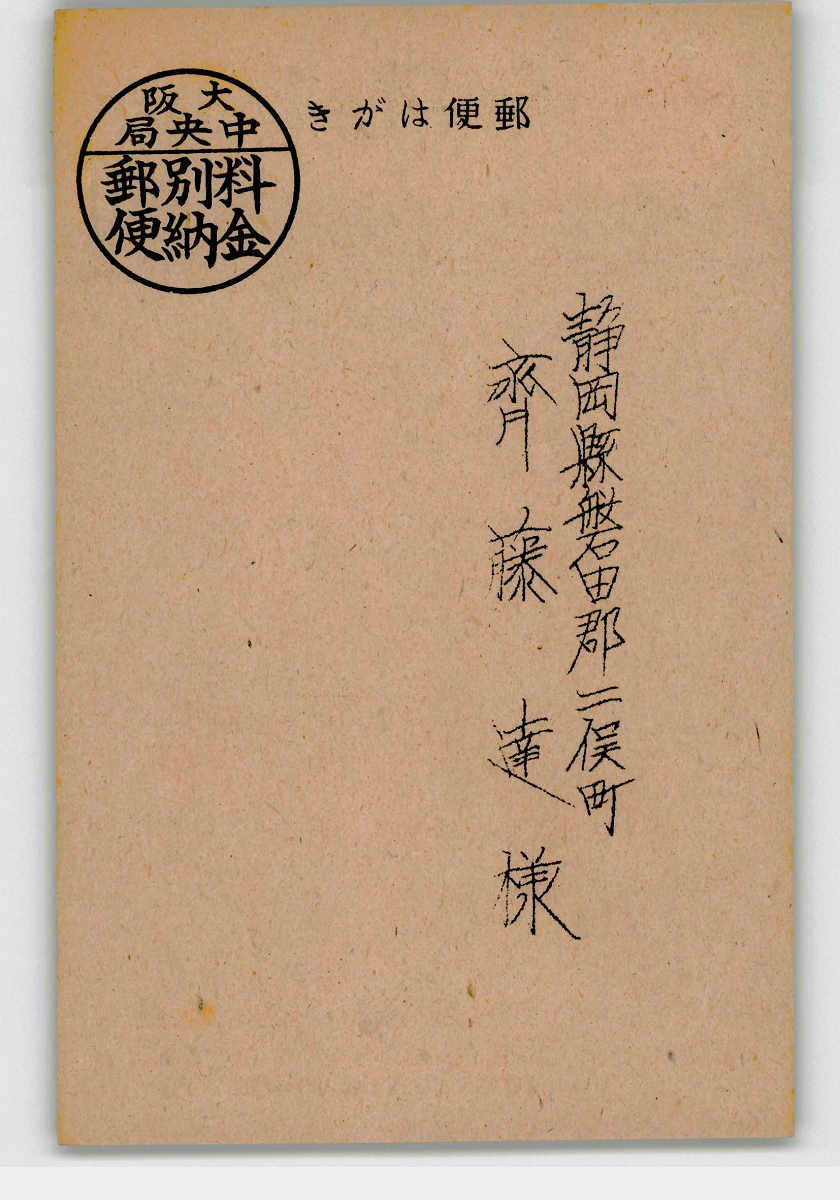 郵便はがき
大阪
中央局
料金
別納
郵便
静岡縣磐田郡二俣町
齊藤達様